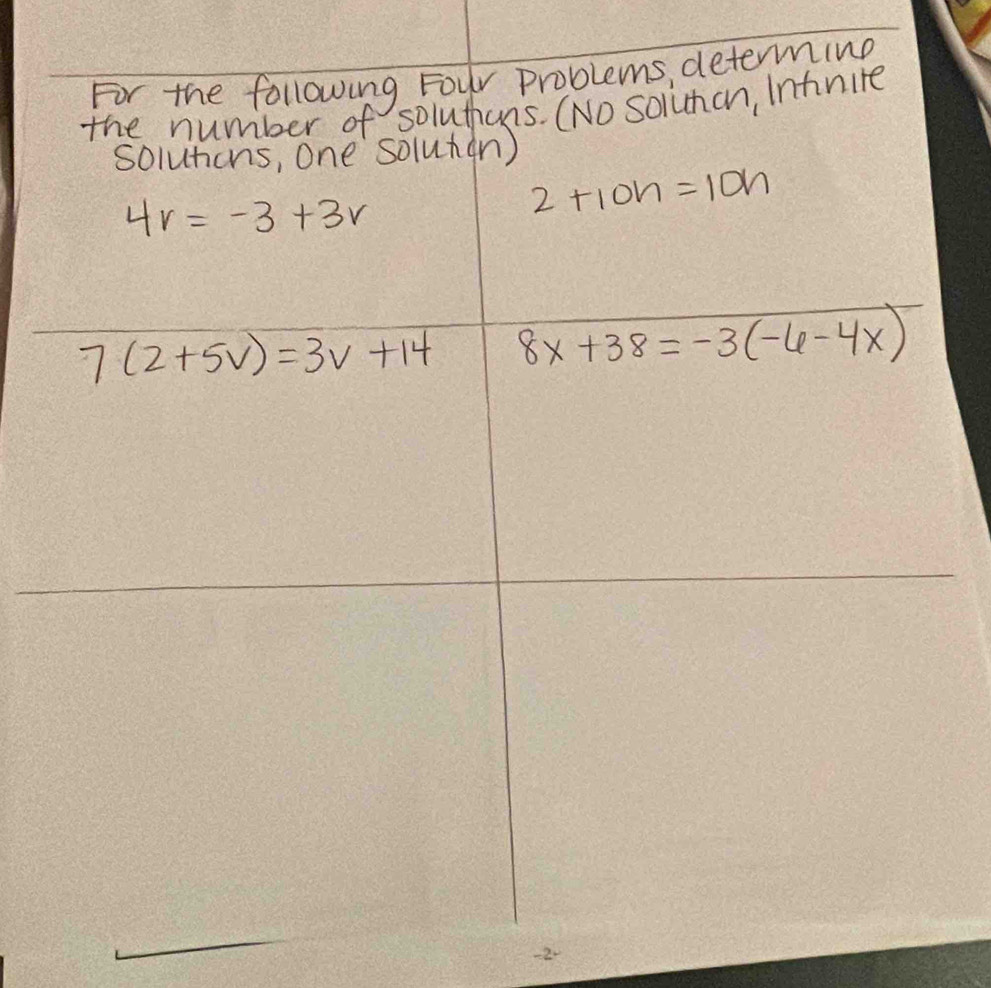 For the following Four Problems, determine
the number of solutions. (No solution, Infinite
solutions, One solution)
4r = -3 + 3r
2 + 10n = 10n
7(2+5v) = 3v + 14
8x + 38 = -3(-6-4x)
-2-